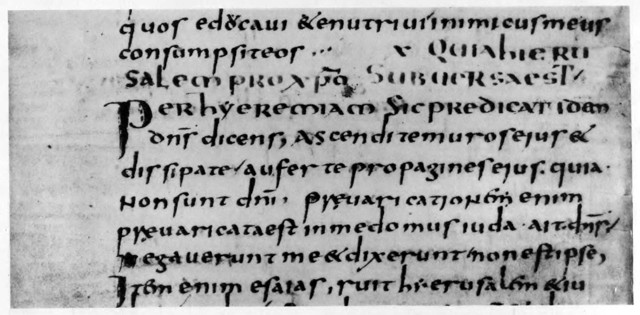 quos educavi & enutrivi inimicus meus
consumpsit eos ··· x Quia hieru
salem pro xpo subversa est
Per hyeremiam sic predicat idem
dns dicens, Ascendite muros eius &
dissipate, auferte propagines eius. quia
non sunt dni, prevaricatione enim
prevaricata est in me domus iuda. ait dns,
negaverunt me & dixerunt, non est ipse,
Item enim esaias, ruit hyerusalem & iu